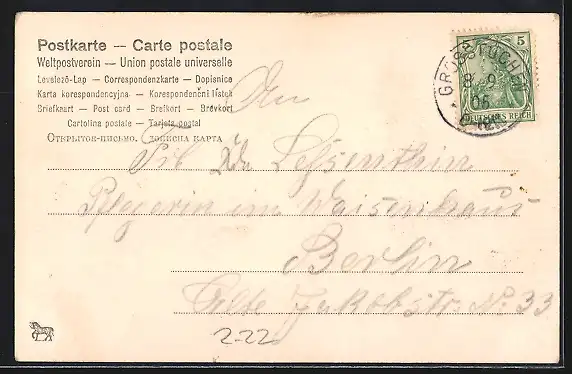 Postkarte — Carte postale
Weltpostverein — Union postale universelle
Levelező-Lap — Correspondenzkarte — Dopisnice
Karta korespondencyjna — Korespondenční lístek
Briefkaart — Post card — Brefkort — Brevkort
Cartolina postale — Tarjeta postal
Открытое письмо.
5
GROSSTUCHEN
8 9
05
DEUTSCHES REICH
An
Pflegerin im Waisenhaus
Berlin
Alte Jakobstr. No. 33
2-22